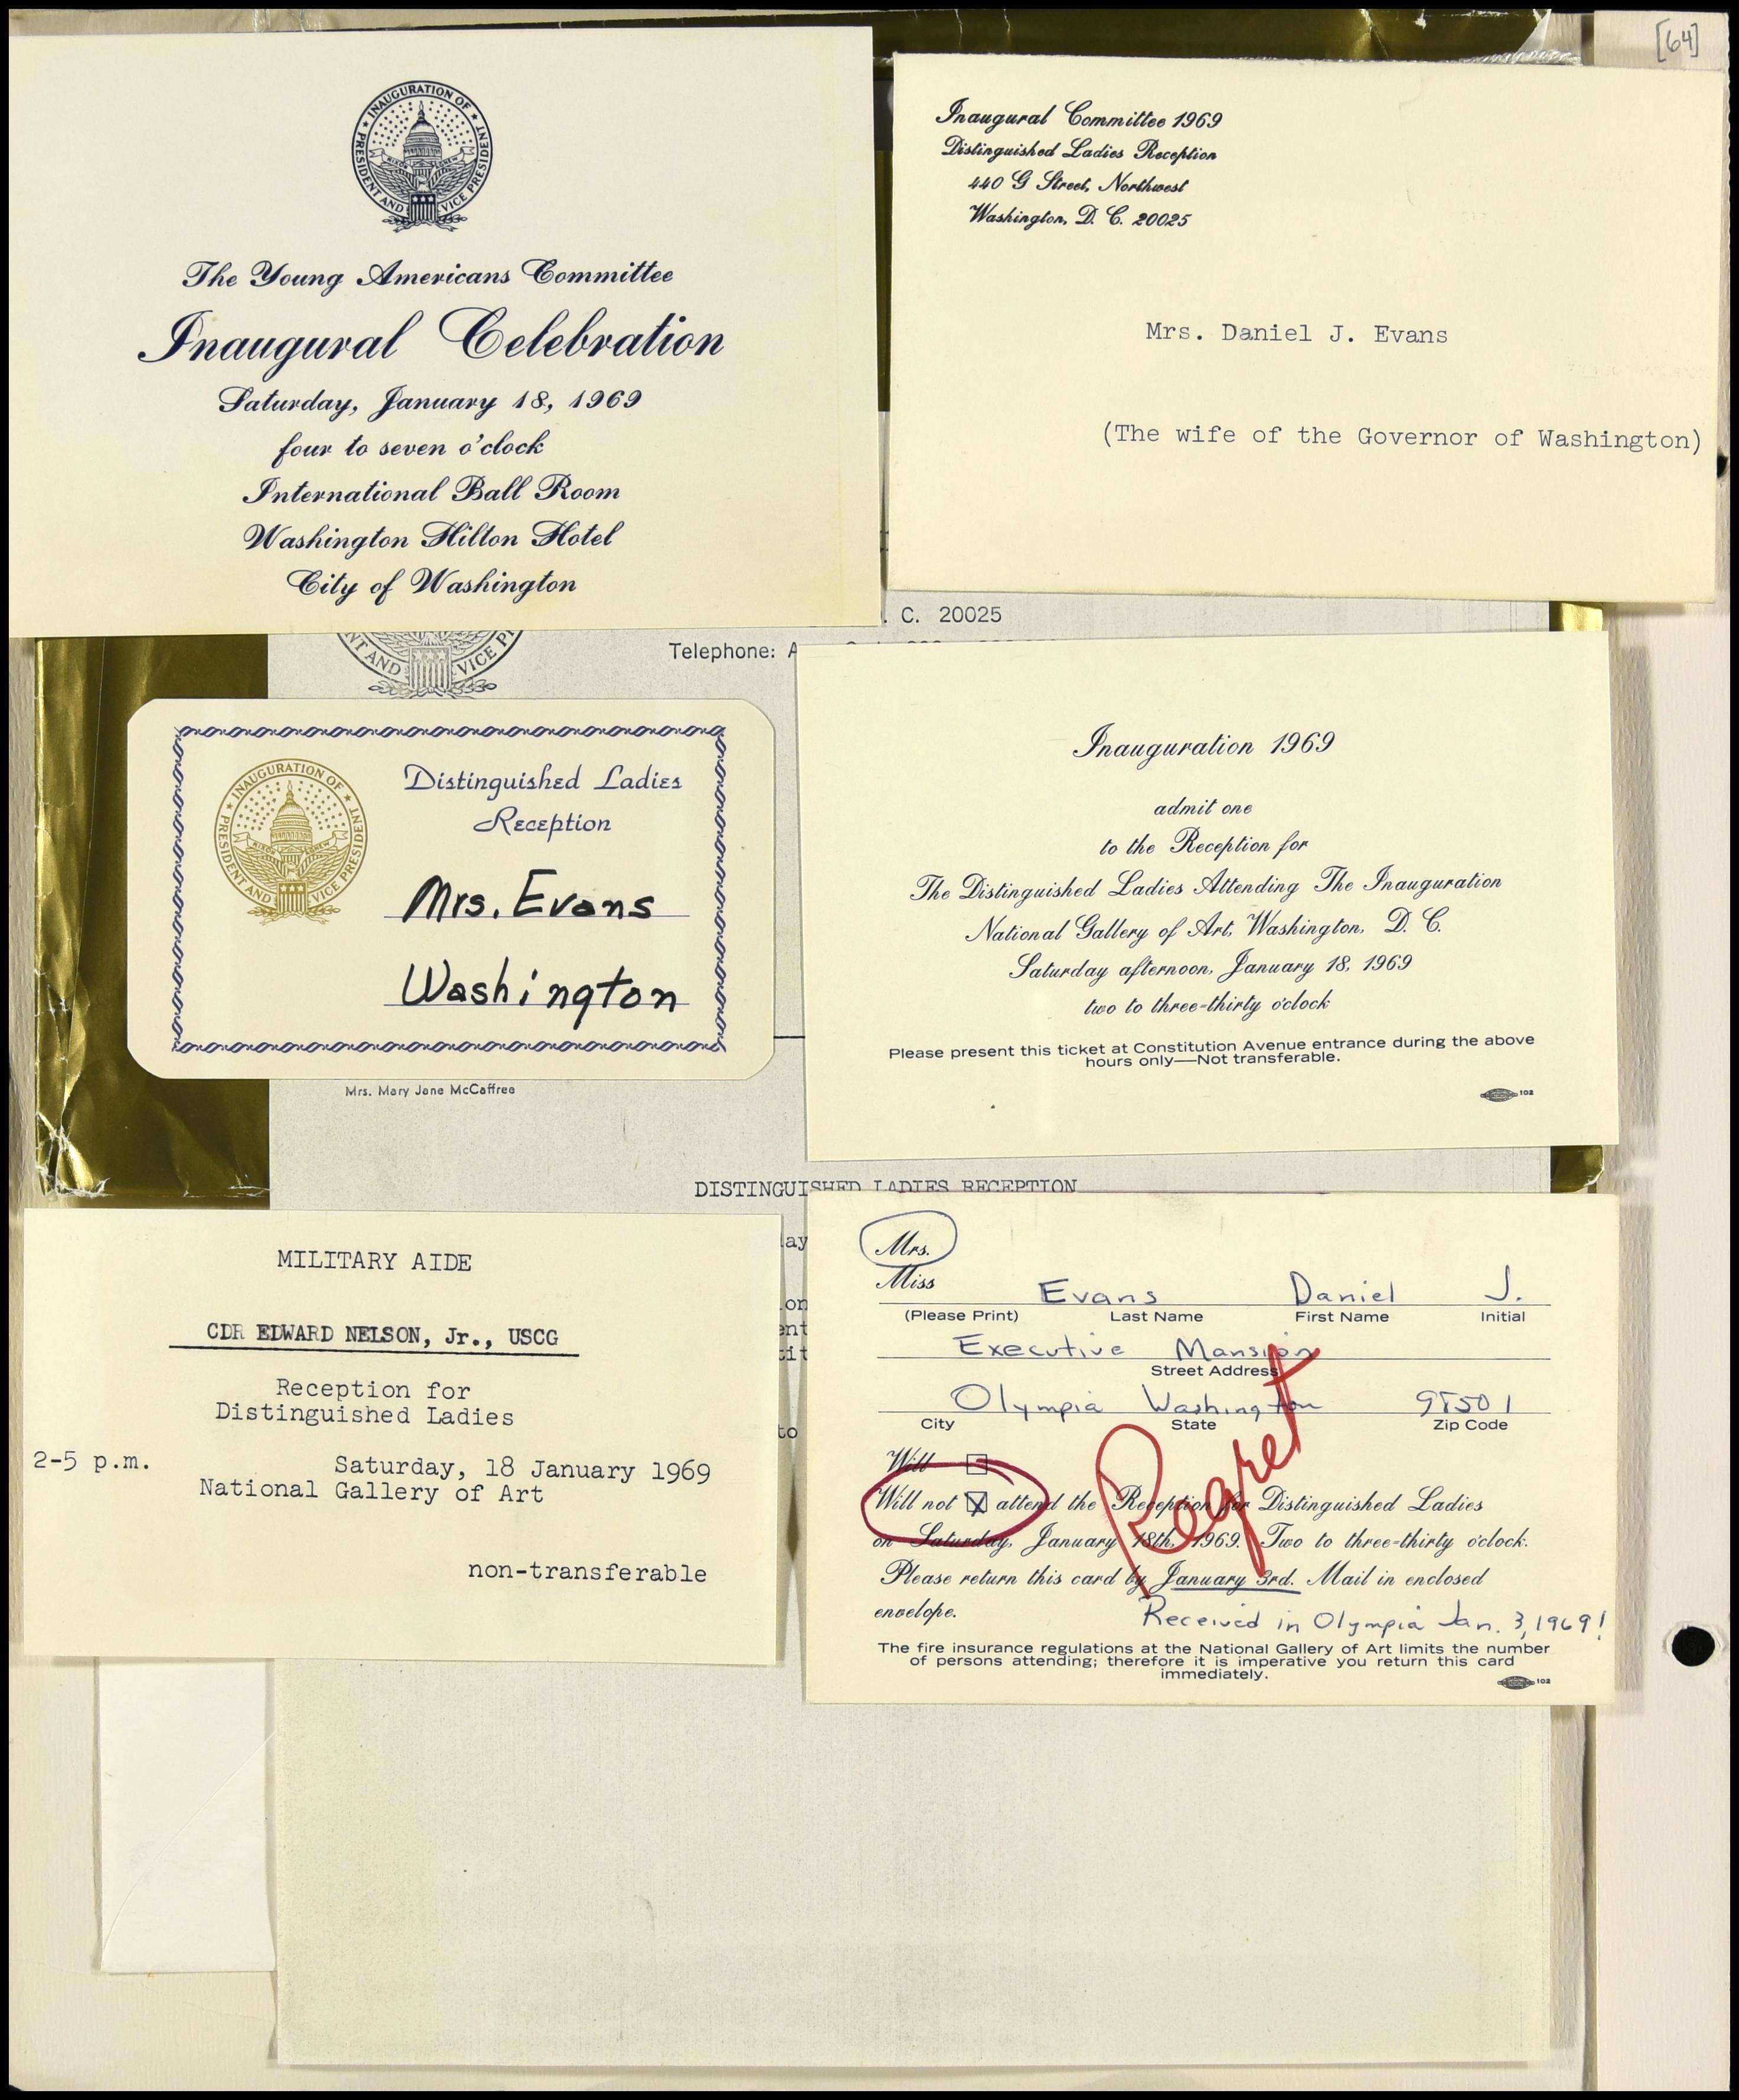 [64]
★ INAUGURATION OF ★
PRESIDENT AND VICE PRESIDENT
The Young Americans Committee
Inaugural Celebration
Saturday, January 18, 1969
four to seven o'clock
International Ball Room
Washington Hilton Hotel
City of Washington
Inaugural Committee 1969
Distinguished Ladies Reception
440 G Street, Northwest
Washington, D. C. 20025
Mrs. Daniel J. Evans
(The wife of the Governor of Washington)
. C. 20025
Telephone: A
NT AND VICE P
★ INAUGURATION OF ★
PRESIDENT AND VICE PRESIDENT
Distinguished Ladies
Reception
Mrs. Evans
Washington
Mrs. Mary Jane McCaffree
Inauguration 1969
admit one
to the Reception for
The Distinguished Ladies Attending The Inauguration
National Gallery of Art, Washington, D. C.
Saturday afternoon, January 18, 1969
two to three-thirty o'clock
Please present this ticket at Constitution Avenue entrance during the above
hours only—Not transferable.
102
DISTINGUISHED LADIES RECEPTION
ay
on
ent
tit
to
MILITARY AIDE
CDR EDWARD NELSON, Jr., USCG
Reception for
Distinguished Ladies
2-5 p.m. Saturday, 18 January 1969
National Gallery of Art
non-transferable
Mrs.
Miss
Evans Daniel J.
(Please Print) Last Name First Name Initial
Executive Mansion
Street Address
Olympia Washington 98501
City State Zip Code
Will
Will not X attend the Reception for Distinguished Ladies
on Saturday, January 18th, 1969. Two to three-thirty o'clock.
Please return this card by January 3rd. Mail in enclosed
envelope.
Regret
Received in Olympia Jan. 3, 1969!
The fire insurance regulations at the National Gallery of Art limits the number
of persons attending; therefore it is imperative you return this card
immediately.
102